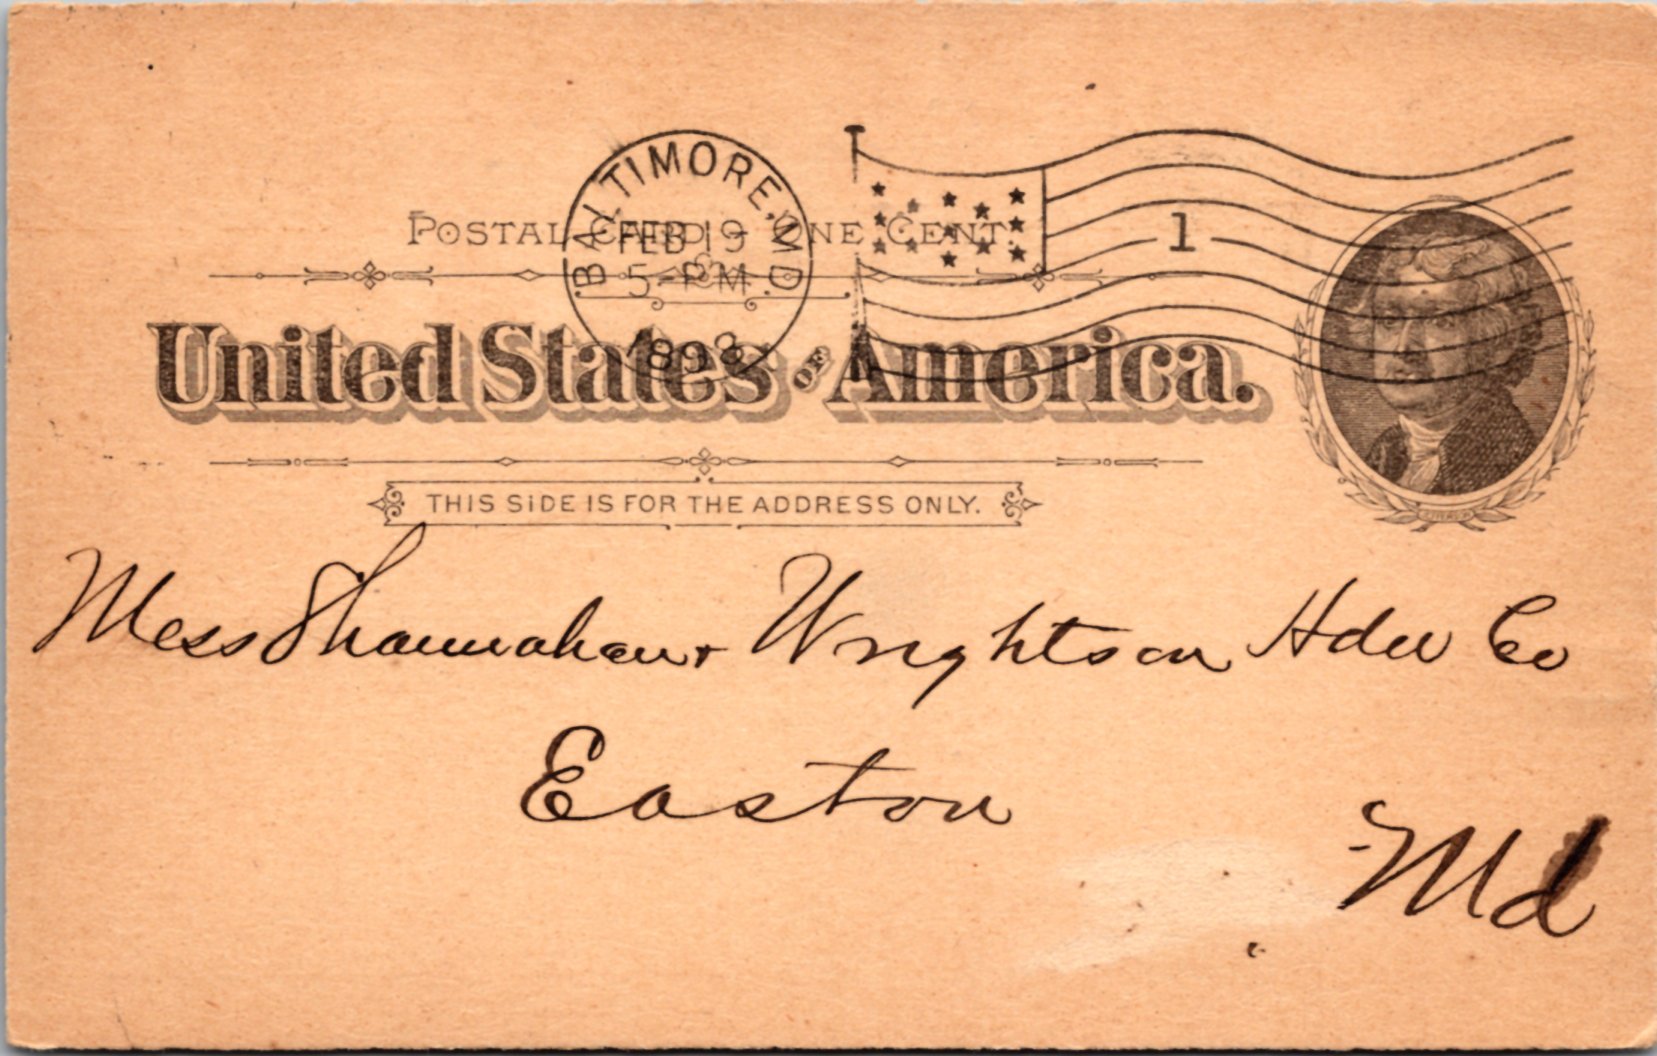 BALTIMORE, MD.
FEB 19
5-PM
1898
1
POSTAL CARD - ONE CENT.
United States OF America.
THIS SIDE IS FOR THE ADDRESS ONLY.
Mess Shannahan & Wrightson Hdw Co
Easton
Md